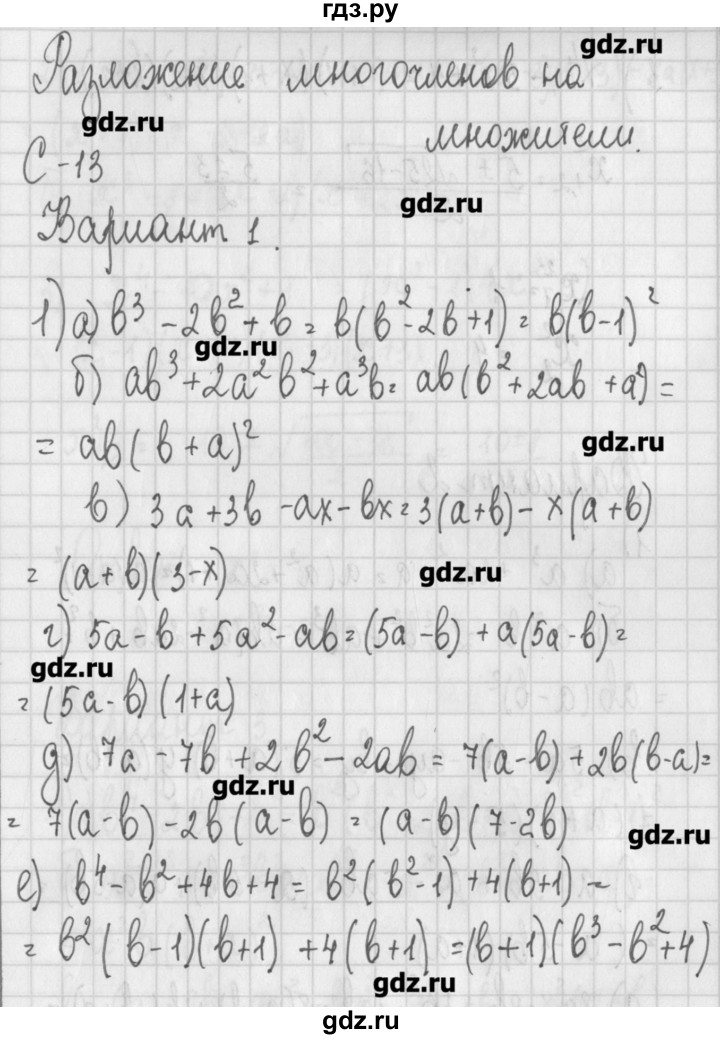 гдз.ру
gdz.ru
Разложение многочленов на
gdz.ru
множители.
С-13
gdz.ru
Вариант 1.
1) а) b³ - 2b² + b = b(b² - 2b + 1) = b(b-1)²
gdz.ru
б) ab³ + 2a²b² + a³b = ab(b² + 2ab + a²) =
= ab(b + a)²
gdz.ru
в) 3a + 3b - ax - bx = 3(a+b) - x(a+b)
= (a+b)(3-x)
gdz.ru
г) 5a - b + 5a² - ab = (5a - b) + a(5a - b) =
gdz.ru
= (5a - b)(1+a)
д) 7a - 7b + 2b² - 2ab = 7(a-b) + 2b(b-a) =
gdz.ru
= 7(a-b) - 2b(a-b) = (a-b)(7-2b)
gdz.ru
е) b⁴ - b² + 4b + 4 = b²(b² - 1) + 4(b+1) =
= b²(b-1)(b+1) + 4(b+1) = (b+1)(b³ - b² + 4)
gdz.ru
gdz.ru